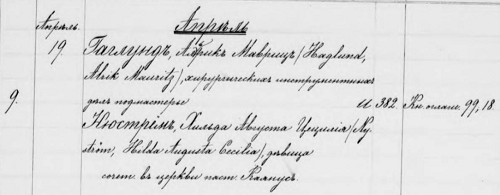 Апрѣль
Апрѣль.
19. Гаглундъ, Альрикъ Маврицъ / Haglund,
Alrik Mauritz /, хирургическихъ инструментныхъ
9. дѣлъ подмастерье И 382. Кн. плат. 99, 18.
Нюстрёмъ, Хильда Августа Цецилія / Ny-
ström, Hilda Augusta Cecilia /, дѣвица
сочет. въ церкви паст.